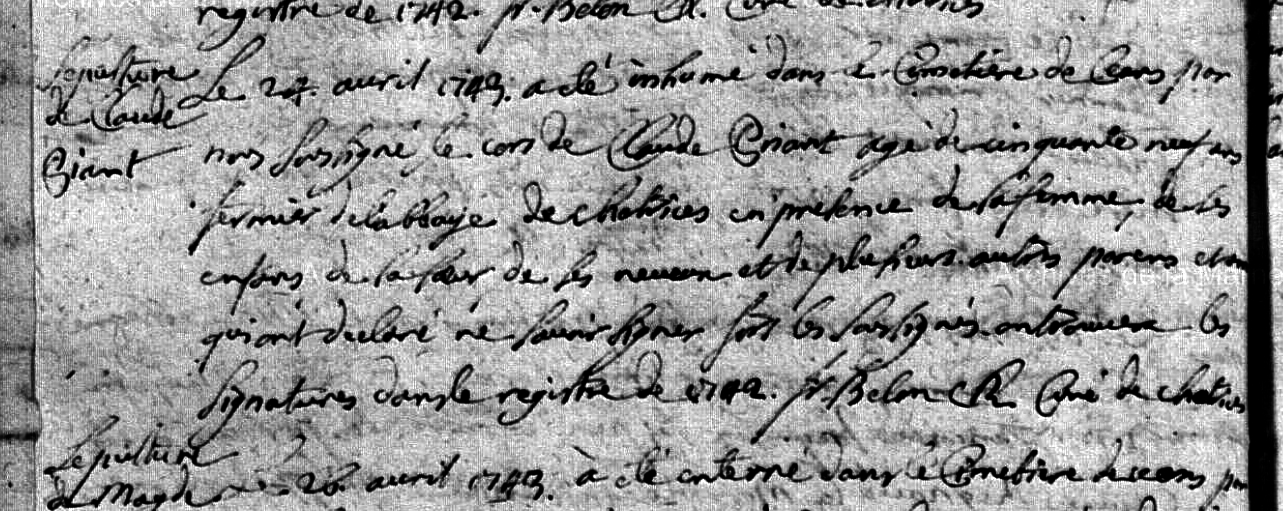 registre de 1742. fr. Belon CR. Curé de chatrices
Sepulture
de Claude
Giant
Le 24. auril 1743. a eté inhumé dans le Cimetière de Ceans par
nous soussigné le cors de Claude Griant agé de cinquante neuf ans
fermier de labbaye de chatrices en presence de sa femme, de ses
enfans de sa sœur de ses neueux et de plusieurs autres parens et am
qui ont declaré ne sauoir signer fors les soussignés. on trouuera les
signatures dans le registre de 1742. fr. Belon CR. Curé de chatrices
Sepulture
de Magde
26. auril 1743. à eté enterré dans le Cimetiere de ceans par